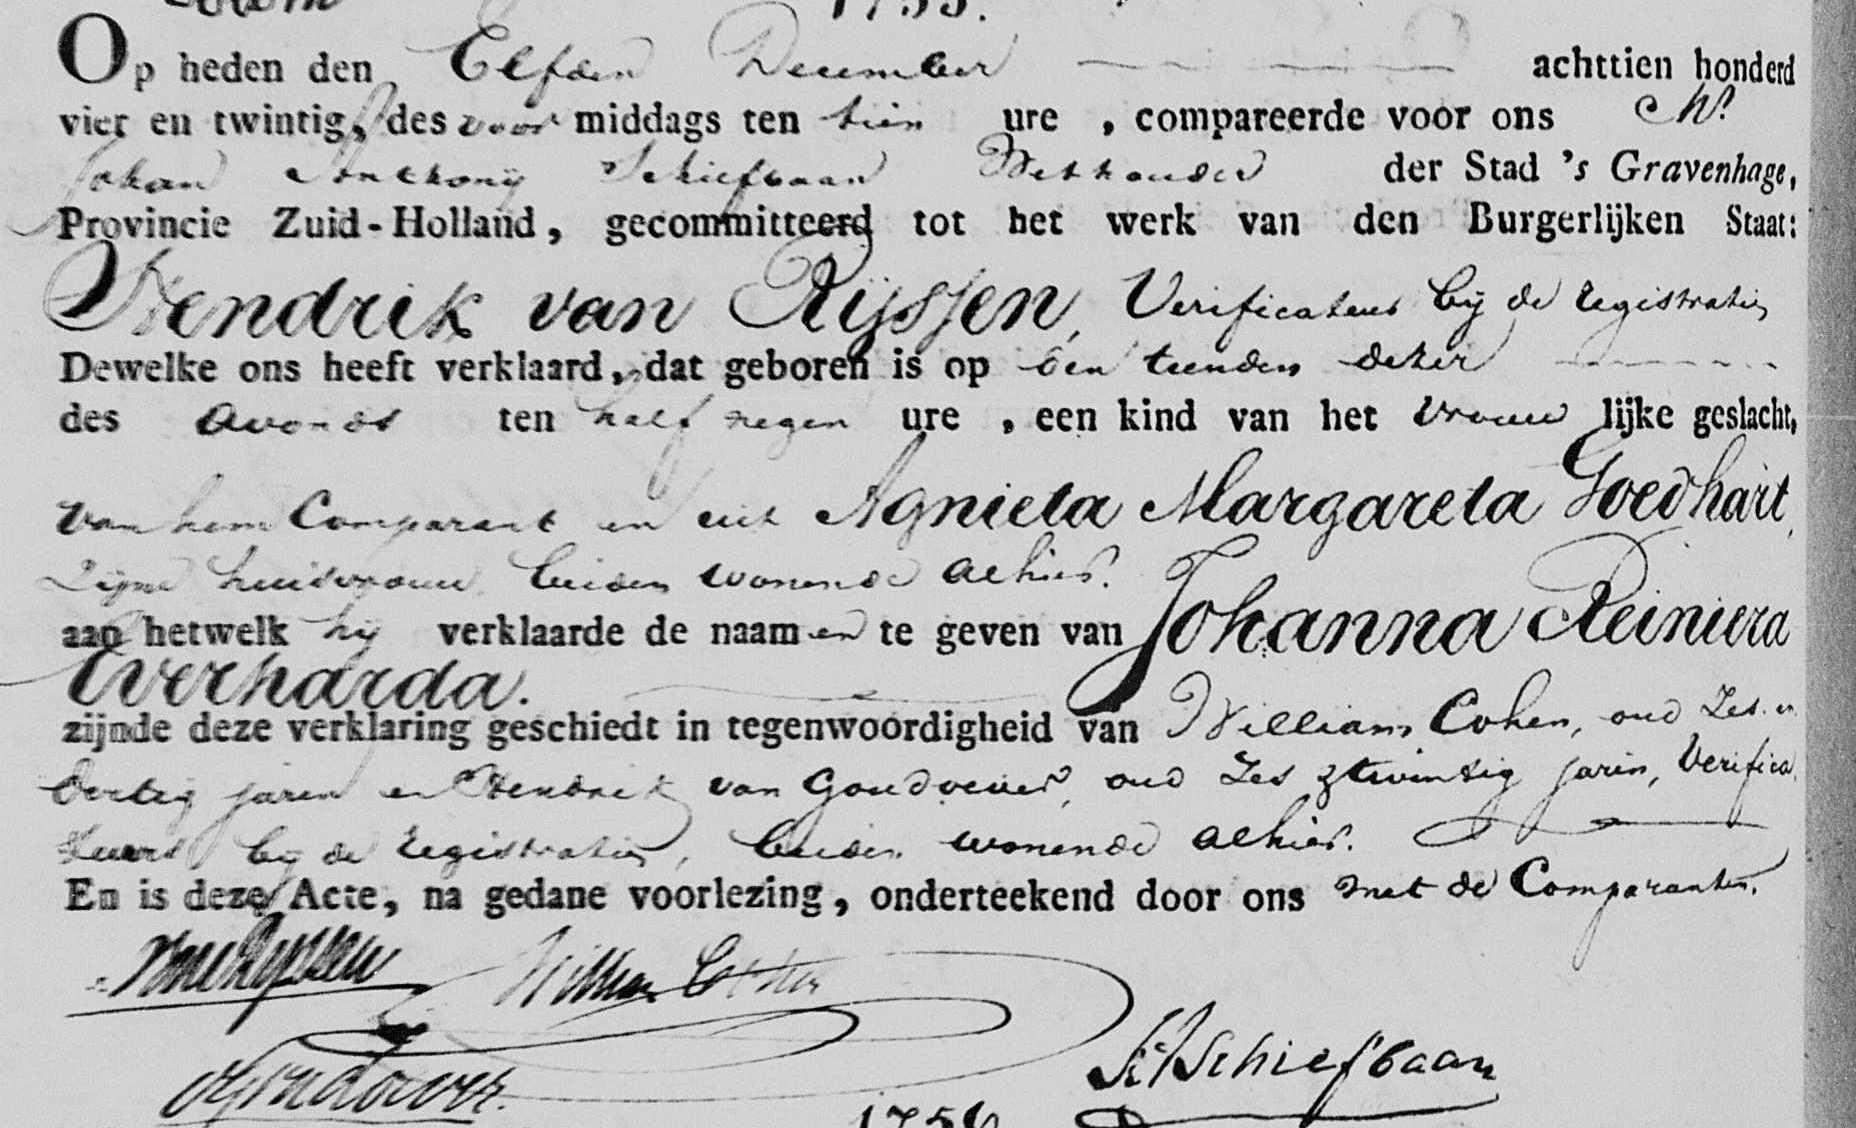 1755.
Op heden den Elfden December achttien honderd
vier en twintig, des voor middags ten tien ure, compareerde voor ons Mr.
Johan Anthonij Schiefbaan Wethouder der Stad 's Gravenhage,
Provincie Zuid-Holland, gecommitteerd tot het werk van den Burgerlijken Staat:
Hendrik van Rijssen, Verificateur bij de registratie
Dewelke ons heeft verklaard, dat geboren is op den tienden dezer
des avonds ten half negen ure, een kind van het vrouwlijke geslacht,
van hem Comparant en uit Agnieta Margareta Goedhart,
zijne huisvrouw, beiden wonende alhier.
aan hetwelk hij verklaarde de naamen te geven van Johanna Reiniera
Everharda.
zijnde deze verklaring geschiedt in tegenwoordigheid van William Cohen, oud Zes en
dertig jaren en Hendrik van Goudoever, oud Zes & twintig jaren, Verifica
teurs bij de registratie, beiden wonende alhier.
En is deze Acte, na gedane voorlezing, onderteekend door ons met de Comparanten.
HvanRijssen William Cohen
HvGoudoever. JASchiefbaan
1756